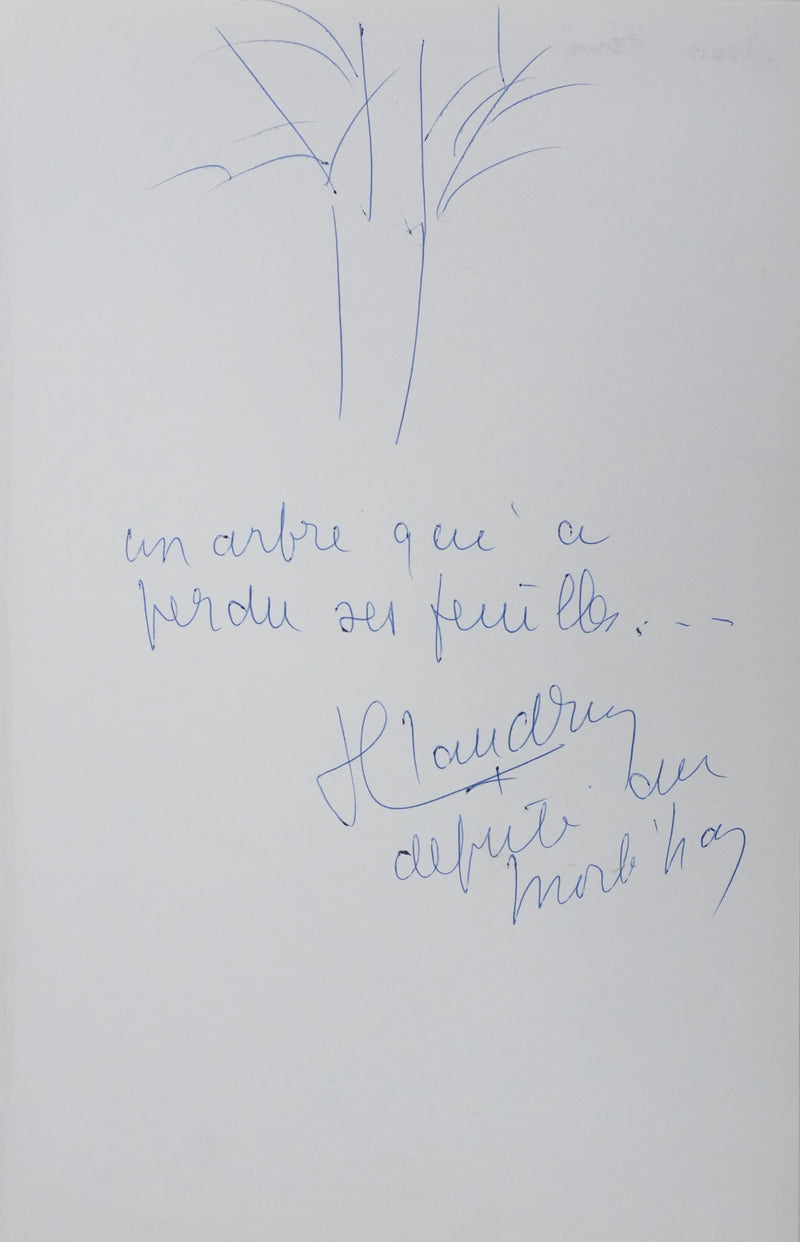 un arbre qui a
perdu ses feuilles. - -
H Landrin
député du
Morbihan